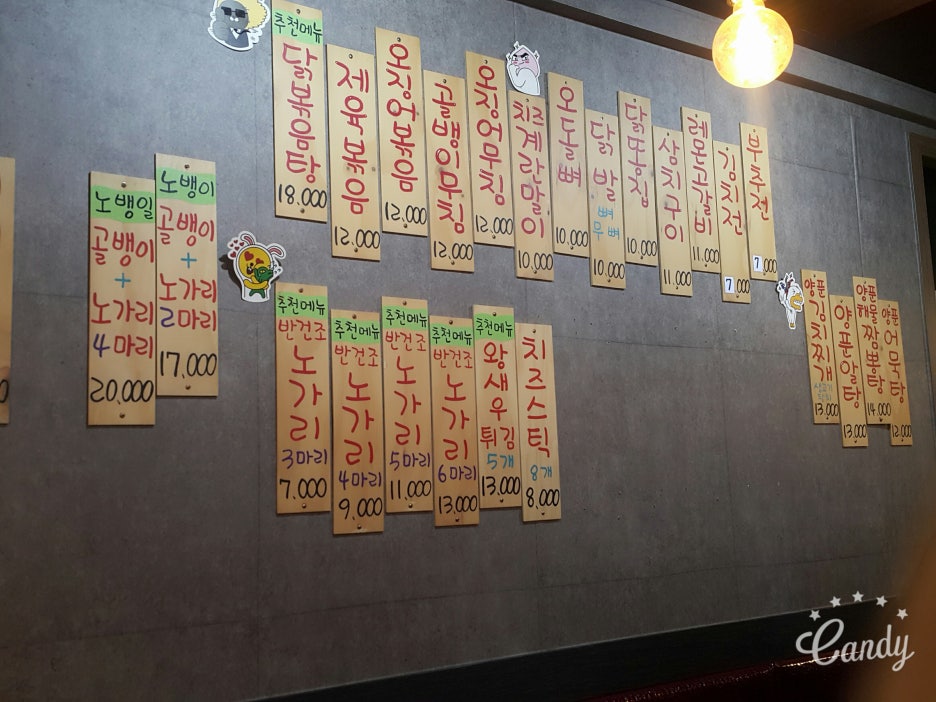 노뱅일
골뱅이
+
노가리
4마리
20,000
노뱅이
골뱅이
+
노가리
2마리
17,000
추천메뉴
닭볶음탕
18.000
제육볶음
12.000
오징어볶음
12.000
골뱅이무침
12.000
오징어무침
12.000
치즈
계란말이
10.000
오돌뼈
10.000
닭발
뼈
무뼈
10.000
닭똥집
10.000
삼치구이
11.000
레몬고갈비
11.000
김치전
7.000
부추전
7.000
추천메뉴
반건조
노가리
3마리
7.000
추천메뉴
반건조
노가리
4마리
9.000
추천메뉴
반건조
노가리
5마리
11.000
추천메뉴
반건조
노가리
6마리
13.000
추천메뉴
왕새우
튀김
5개
13.000
치즈스틱
8개
8.000
양푼
김치찌개
13.000
양푼알탕
13.000
양푼
해물
짬뽕탕
14.000
양푼
어묵탕
12.000
Candy